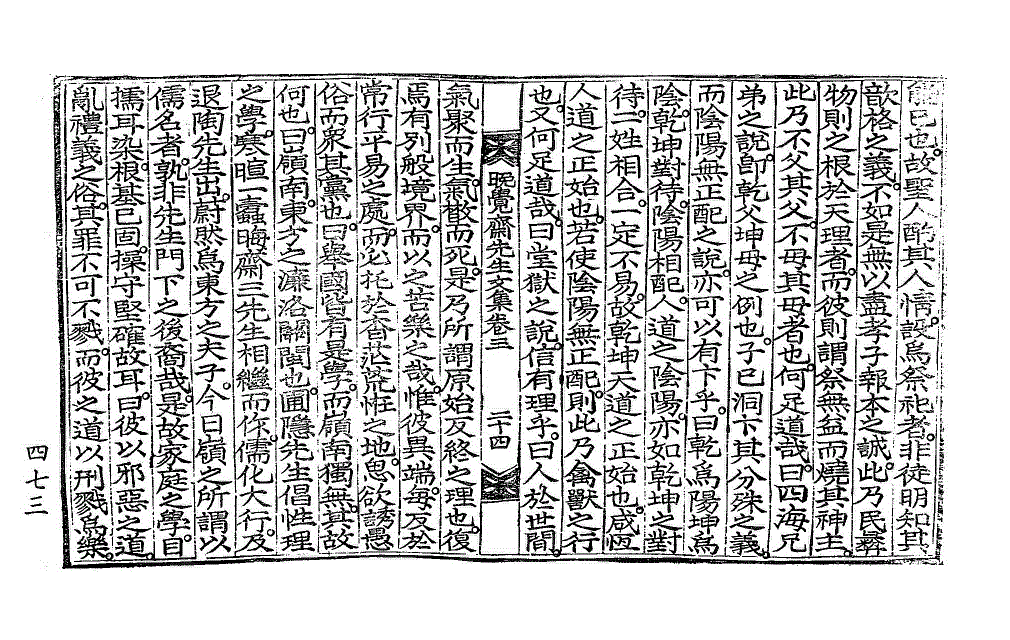 能已也。故聖人酌其人情。設爲祭祀者。非徒明知其
歆格之義。不如是無以盡孝子報本之誠。此乃民彝
物則之根於天理者。而彼則謂祭無益而燒其神主。
此乃不父其父。不母其母者也。何足道哉。曰。四海兄
弟之說。卽乾父坤母之例也。子已洞卞其分殊之義。
而陰陽無正配之說。亦可以有卞乎。曰。乾爲陽坤爲
陰。乾坤對待。陰陽相配。人道之陰陽。亦如乾坤之對
待。二姓相合。一定不易。故乾坤天道之正始也。咸恆
人道之正始也。若使陰陽無正配。則此乃禽獸之行
也。又何足道哉。曰。堂獄之說。信有理乎。曰。人於世間。
晩覺齋先生文集卷三　二十四
氣聚而生。氣散而死。是乃所謂原始反終之理也。復
焉有別般境界。而以之苦樂之哉。惟彼異端。每反於
常行平易之處。而必托於杳茫荒恠之地。思欲誘愚
俗而衆其黨也。曰。擧國皆有是學。而嶺南獨無。其故
何也。曰。嶺南。東方之濂洛關閩也。圃隱先生倡性理
之學。寒暄一蠹晦齋三先生相繼而作。儒化大行。及
退陶先生出。蔚然爲東方之夫子。今日嶺之所謂以
儒名者。孰非先生門下之後裔哉。是故家庭之學。目
擩耳染。根基已固。操守堅確故耳。曰。彼以邪惡之道。
亂禮義之俗。其罪不可不戮。而彼之道以刑戮爲樂。
四七三